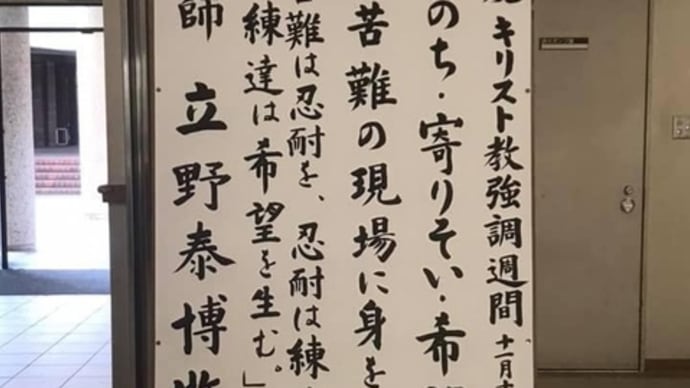 キリスト教強調週間 十一月
のち・寄りそい・希
苦難の現場に身を
難は忍耐を、忍耐は練
練達は希望を生む。」
師 立野泰博